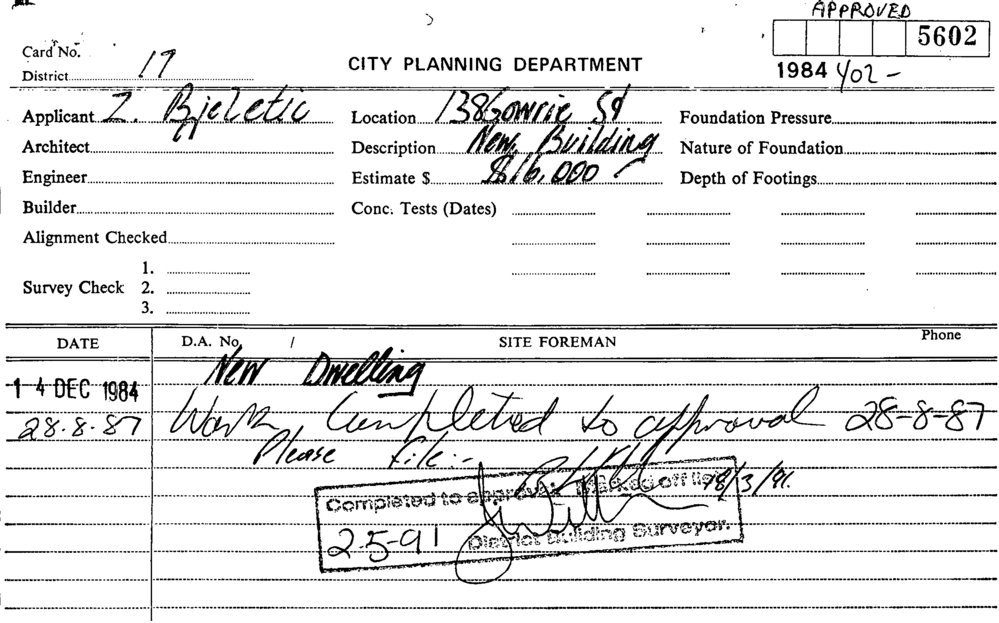 APPROVED
5602
Card No.
District 17
CITY PLANNING DEPARTMENT
1984 402 -
Applicant Z. Bjeletic
Location 138 Gowrie St
Foundation Pressure
Architect
Description New Building
Nature of Foundation
Engineer
Estimate $ $16,000
Depth of Footings
Builder
Conc. Tests (Dates)
Alignment Checked
1.
Survey Check 2.
3.
DATE
D.A. No. /
SITE FOREMAN
Phone
New Dwelling
14 DEC 1984
28.8.87 Work Completed to approval 28-8-87
Please file:-
18/3/91.
Completed to approval. Marked off list
2-5-91 District Building Surveyor.